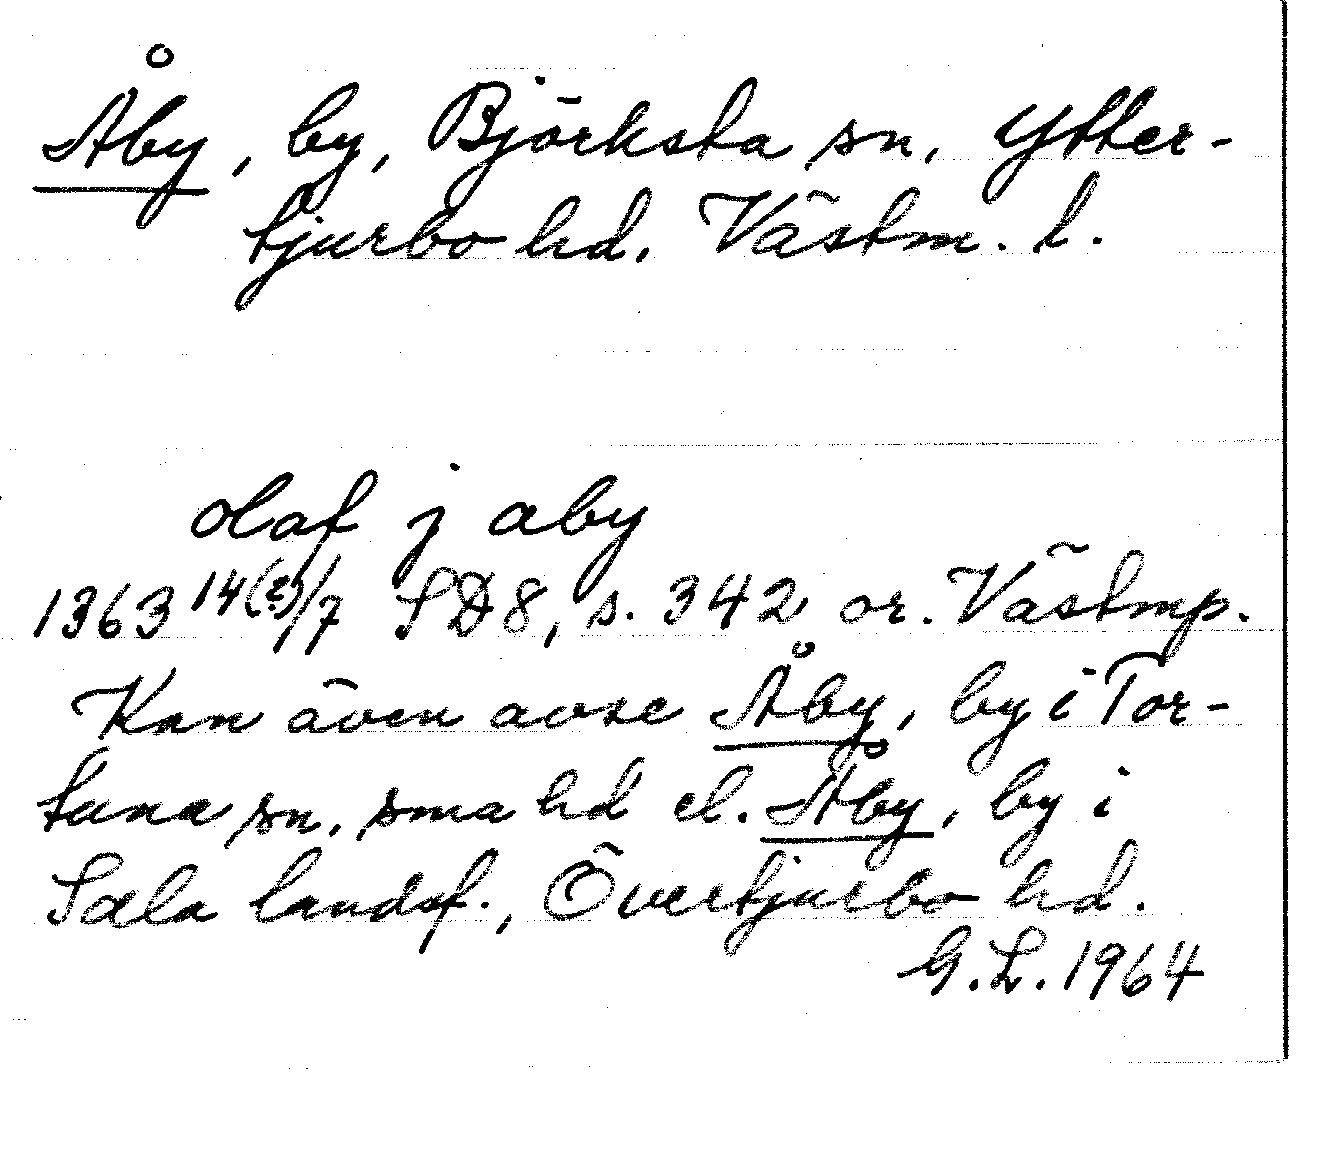 Åby, by, Björksta sn, Ytter-
tjurbo hd. Västm. l.
olaf j aby
1363 14(?)/7 SD8, s. 342 or. Västmp.
Kan även avse Åby, by i Tor-
tuna sn, sma hd el. Åby, by i
Sala landsf., Övertjurbo hd.
G.L. 1964